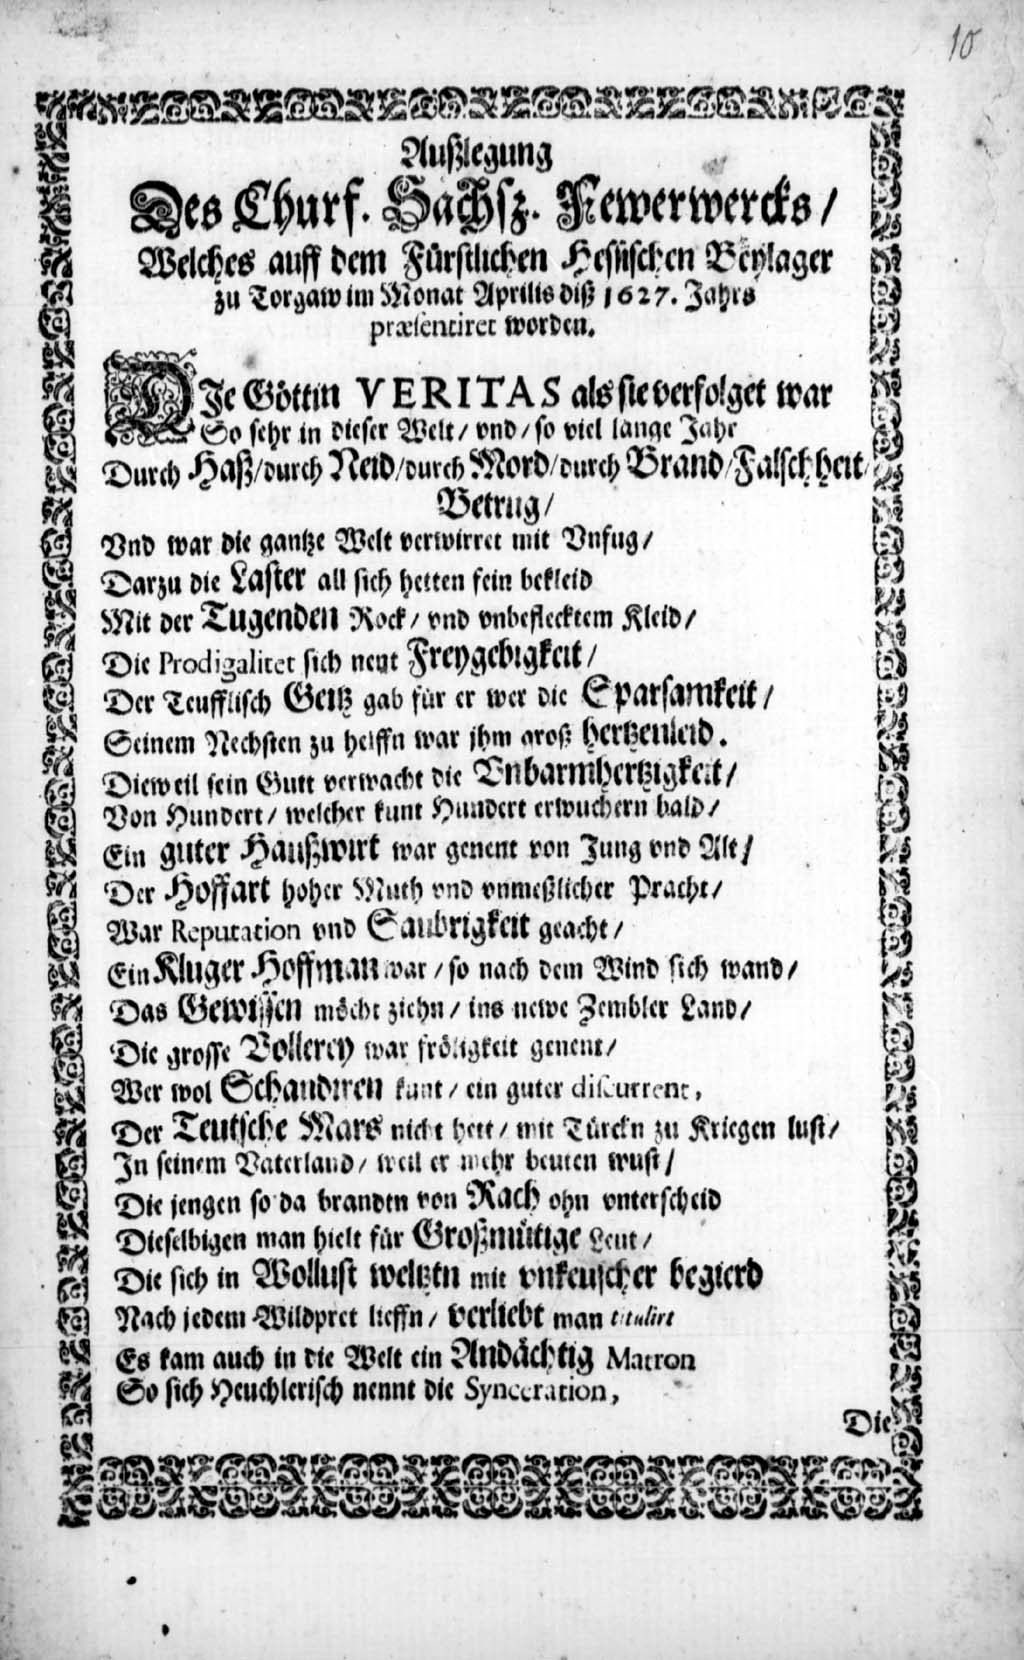 10
Außlegung
Des Churf. Sächsz. Fewerwercks/
Welches auff dem Fürstlichen Hessischen Beylager
zu Torgaw im Monat Aprilis diß 1627. Jahrs
præsentiret worden.
DJe Göttin VERITAS als sie verfolget war
So sehr in dieser Welt/ vnd/ so viel lange Jahr
Durch Haß/durch Neid/durch Mord/durch Brand/Falschheit/
Betrug/
Vnd war die gantze Welt verwirret mit Vnfug/
Darzu die Laster all sich hetten fein bekleid
Mit der Tugenden Rock/ vnd vnbeflecktem Kleid/
Die Prodigalitet sich nent Freygebigkeit/
Der Teufflisch Geitz gab für er wer die Sparsamkeit/
Seinem Nechsten zu helffn war jhm groß hertzenleid.
Dieweil sein Gutt verwacht die Vnbarmhertzigkeit/
Von Hundert/ welcher kunt Hundert erwuchern bald/
Ein guter Haußwirt war genent von Jung vnd Alt/
Der Hoffart hoher Muth vnd vnmeßlicher Pracht/
War Reputation vnd Saubrigkeit geacht/
Ein Kluger Hoffman war/ so nach dem Wind sich wand/
Das Gewissen möcht ziehn/ ins newe Zembler Land/
Die grosse Vollerey war fröligkeit genent/
Wer wol Schandiren kunt/ ein guter discurrent,
Der Teutsche Mars nicht hett/ mit Türckn zu Kriegen lust/
In seinem Vaterland/ weil er mehr beuten wust/
Die jengen so da brandtn von Rach ohn vnterscheid
Dieselbigen man hielt für Großmütige Leut/
Die sich in Wollust weltztn mit vnkeuscher begierd
Nach jedem Wildpret lieffn/ verliebt man titulirt
Es kam auch in die Welt ein Andächtig Matron
So sich Heuchlerisch nennt die Synceration,
Die